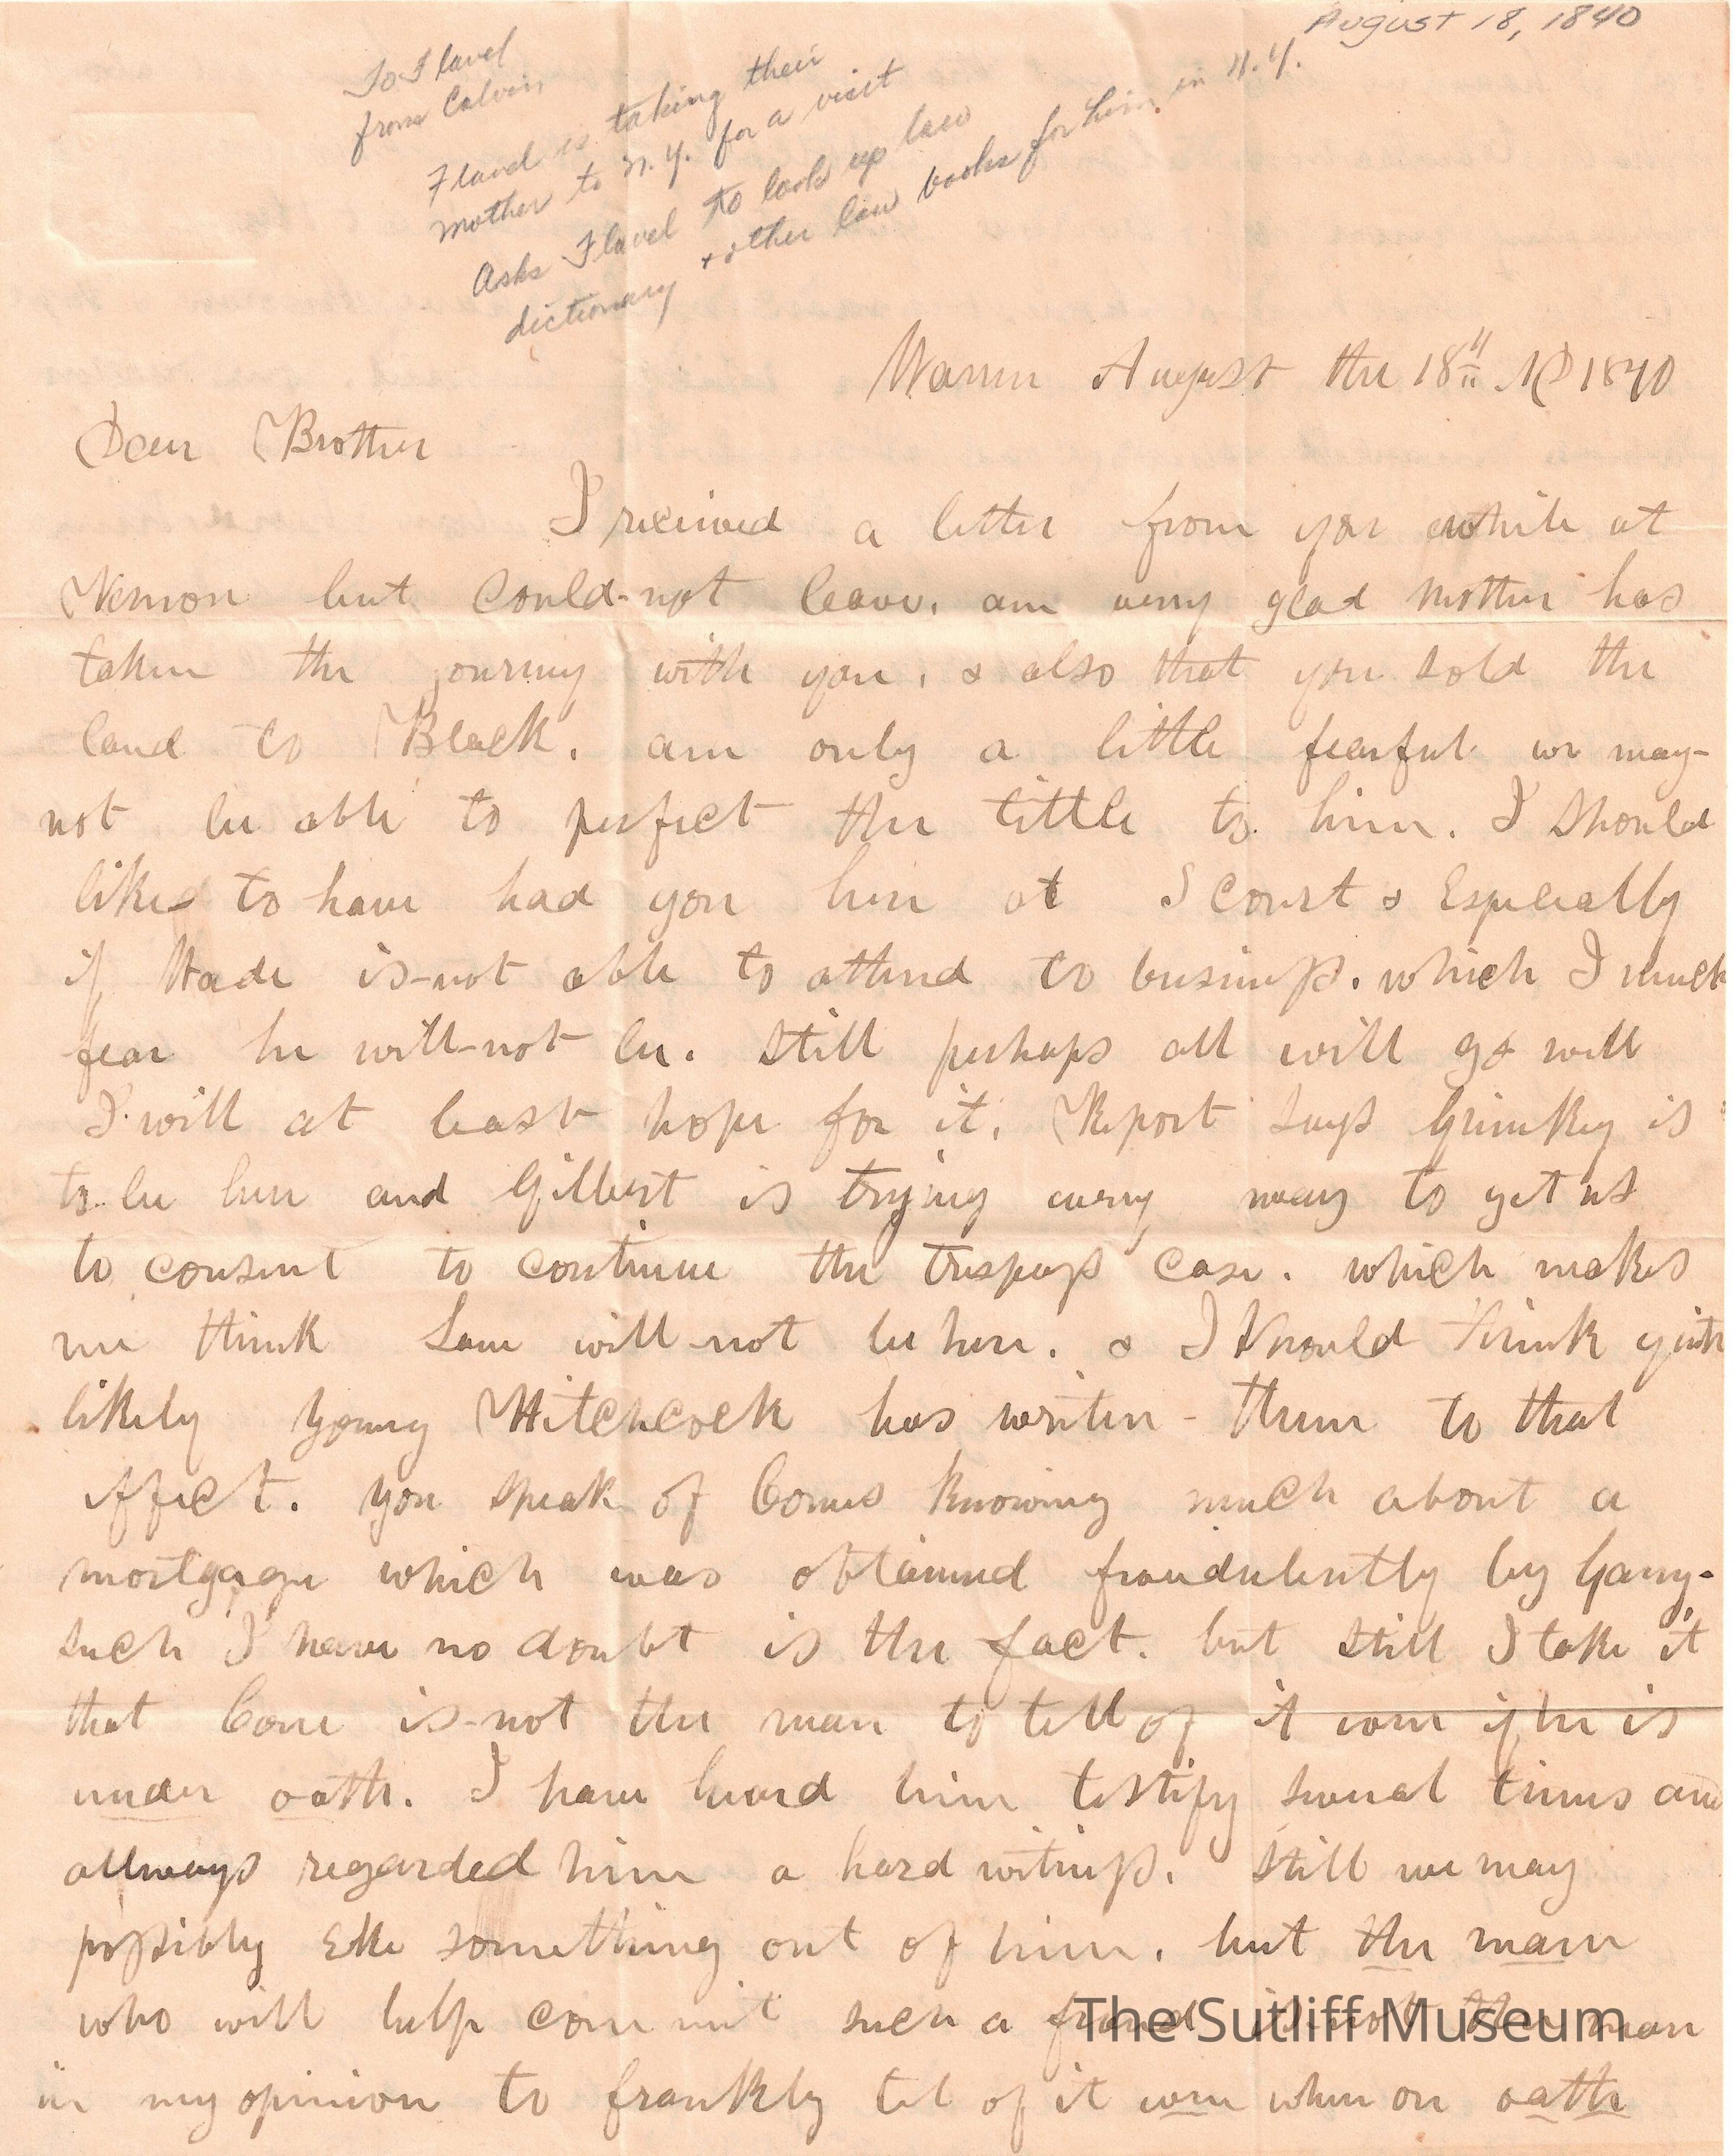 August 18, 1840
To Flavel
from Calvin
Flavel is taking their
mother to N.Y. for a visit
Asks Flavel to look up law
dictionary + other law books for him in N.Y.
Warren August the 18th AD 1840
Dear Brother
I received a letter from you while at
Vernon but could-not leave. am very glad Mother has
taken the journey with you, & also that you sold the
land to Black. am only a little fearful we may-
not be able to perfect the tittle to him. I should
liked to have had you here at S Court & Especially
if Wade is-not able to attend to business. which I much
fear he will-not be. Still perhaps all will go well
I will at least hope for it. Report says Grimkey is
to be here and Gilbert is trying every way to get us
to consent to continue the trespass case. which makes
me think Law will-not be here. & I should think quite
likely young Hitchcock has writen them to that
effect. you speak of Cones knowing much about a
mortgage which was obtained fraudulently by Garry-
such I have no doubt is the fact. but still I take it
that Cone is-not the man to tell of it even if he is
under oath. I have heard him testify several times and
allways regarded him a hard witness. Still we may
possibly Eke something out of him. but the man
who will help commit such a fraud is-not the man
in my opinion to frankly tel of it even when on oath
The Sutliff Museum